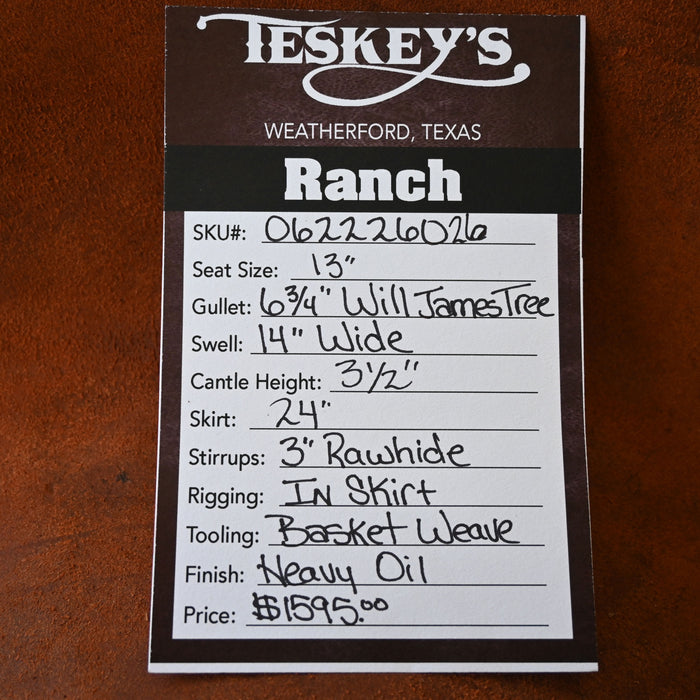 TESKEY'S
WEATHERFORD, TEXAS
Ranch
SKU#: 0622226026
Seat Size: 13"
Gullet: 6 3/4" Will James Tree
Swell: 14" Wide
Cantle Height: 3 1/2"
Skirt: 24"
Stirrups: 3" Rawhide
Rigging: In Skirt
Tooling: Basket Weave
Finish: Heavy Oil
Price: $1595.00